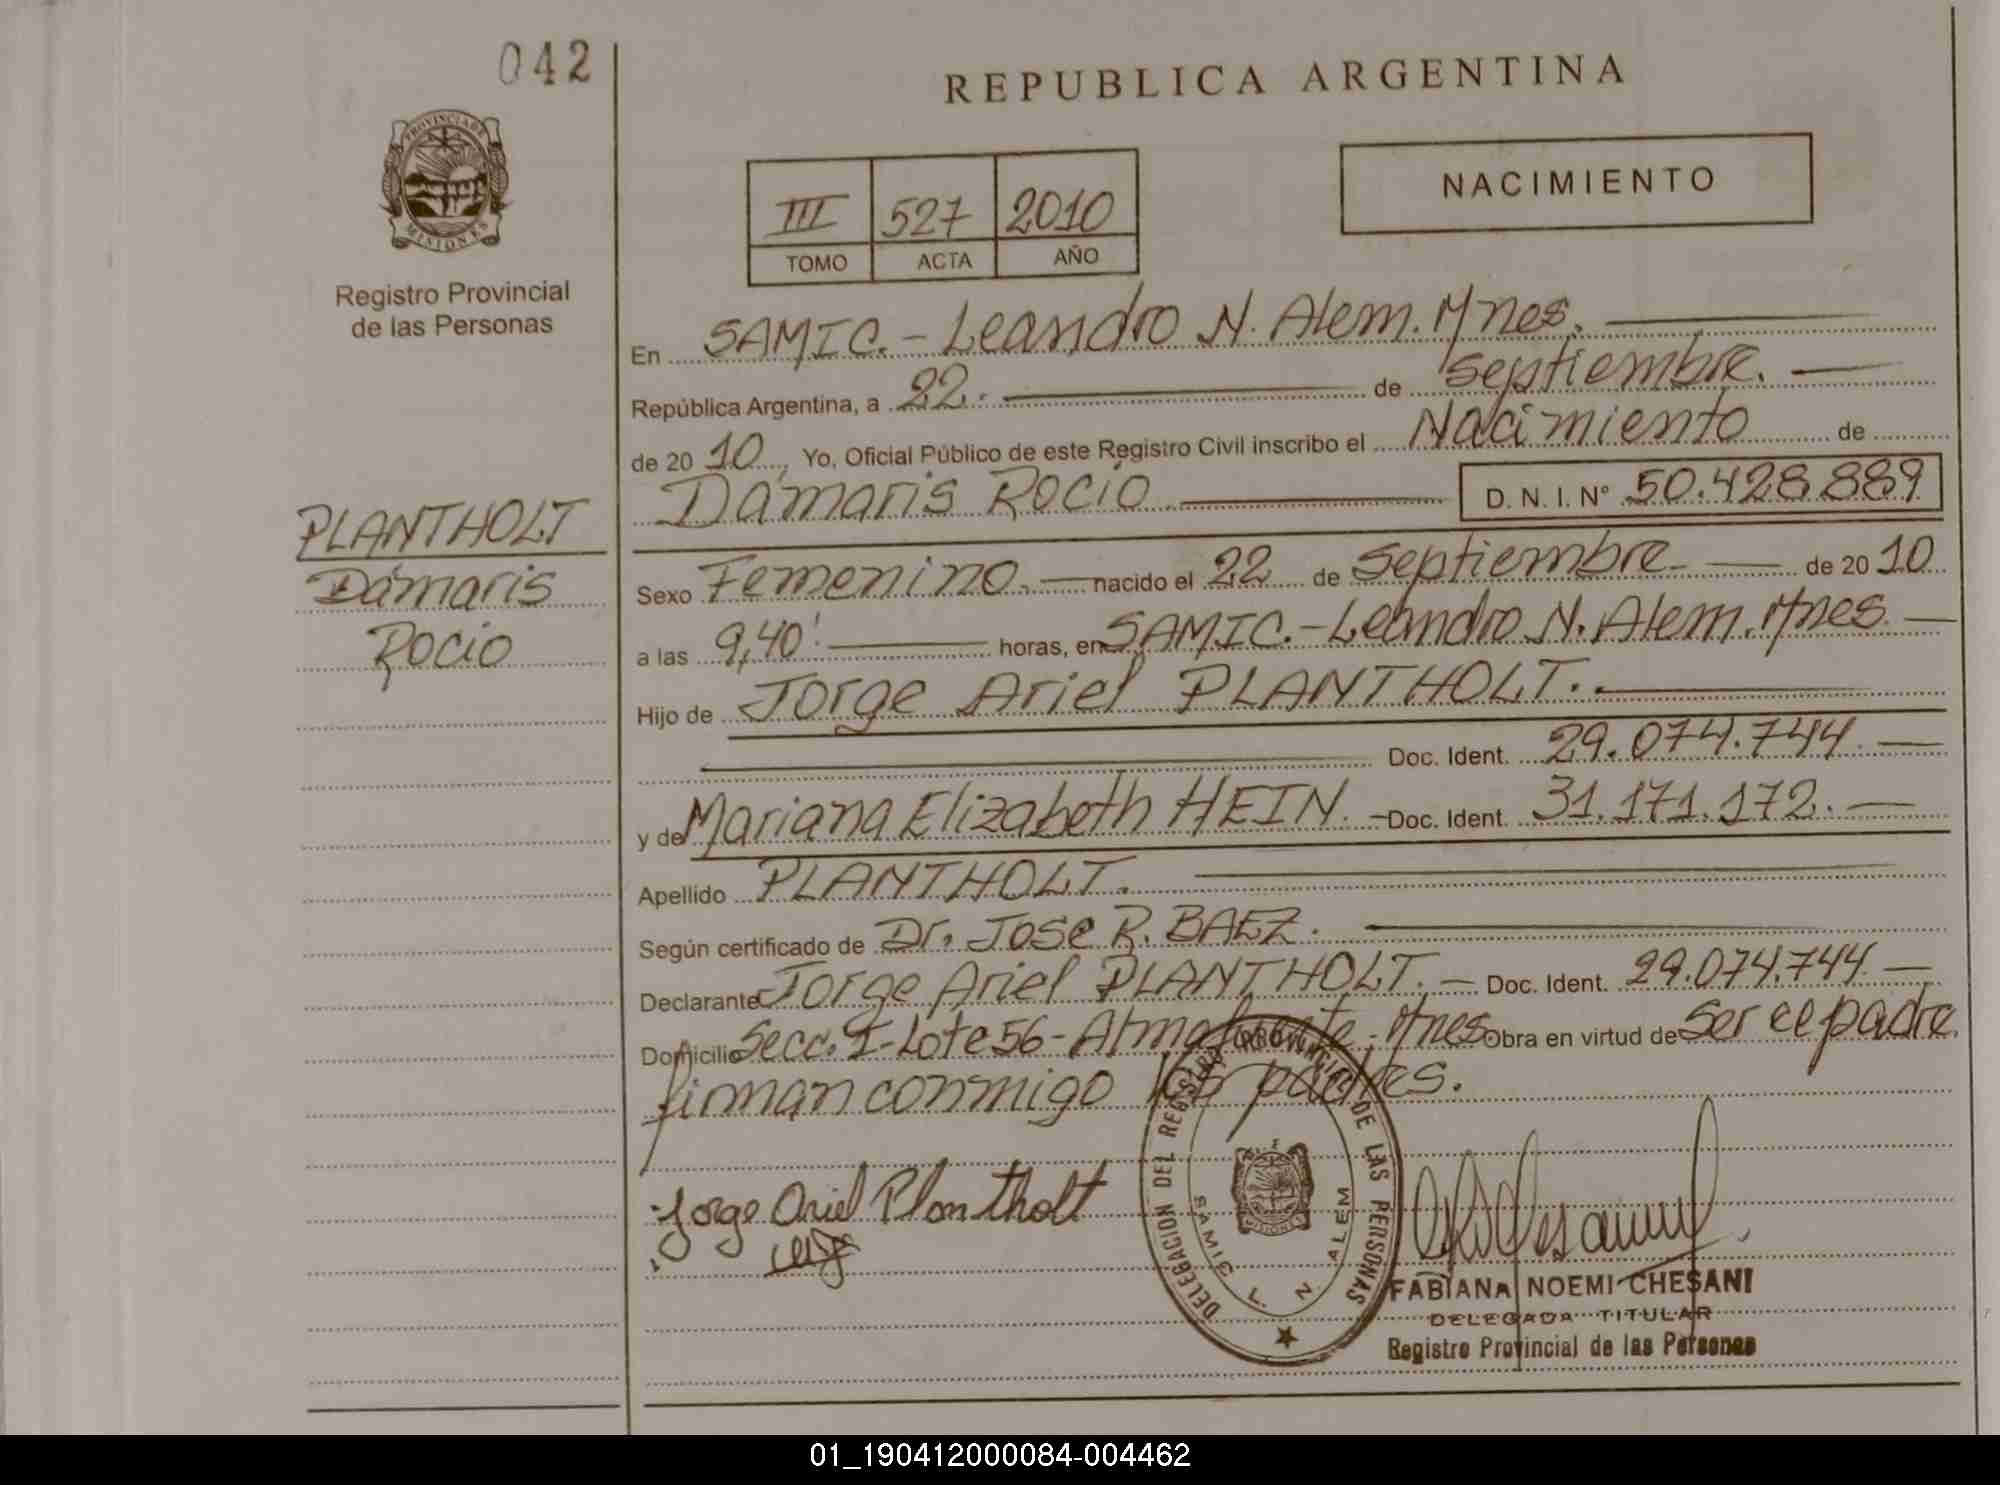 042
REPUBLICA ARGENTINA
PROVINCIA DE
MISIONES
Registro Provincial
de las Personas
III 527 2010
TOMO ACTA AÑO
NACIMIENTO
En SAMIC.- Leandro N. Alem. Mnes.
República Argentina, a 22. de septiembre.
de 20 10, Yo, Oficial Público de este Registro Civil inscribo el Nacimiento de
Dámaris Rocío D. N. I. N° 50.428.889
PLANTHOLT
Dámaris
Rocío
Sexo Femenino. nacido el 22 de septiembre de 20 10
a las 9,40' horas, en SAMIC.- Leandro N. Alem. Mnes
Hijo de Jorge Ariel PLANTHOLT.
Doc. Ident. 29.074.744
y de Mariana Elizabeth HEIN. Doc. Ident. 31.171.172.
Apellido PLANTHOLT.
Según certificado de Dr. Jose R. BAEZ.
Declarante Jorge Ariel PLANTHOLT. Doc. Ident. 29.074.744
Domicilio Secc. I- Lote 56- Almafuerte - Mnes Obra en virtud de ser el padre
firman conmigo los padres.
Jorge Ariel Plantholt
DELEGACION DEL REGISTRO PROVINCIAL DE LAS PERSONAS
SAMIC L. N. ALEM
MISIONES
FABIANA NOEMI CHESANI
DELEGADA TITULAR
Registro Provincial de las Personas
01_190412000084-004462